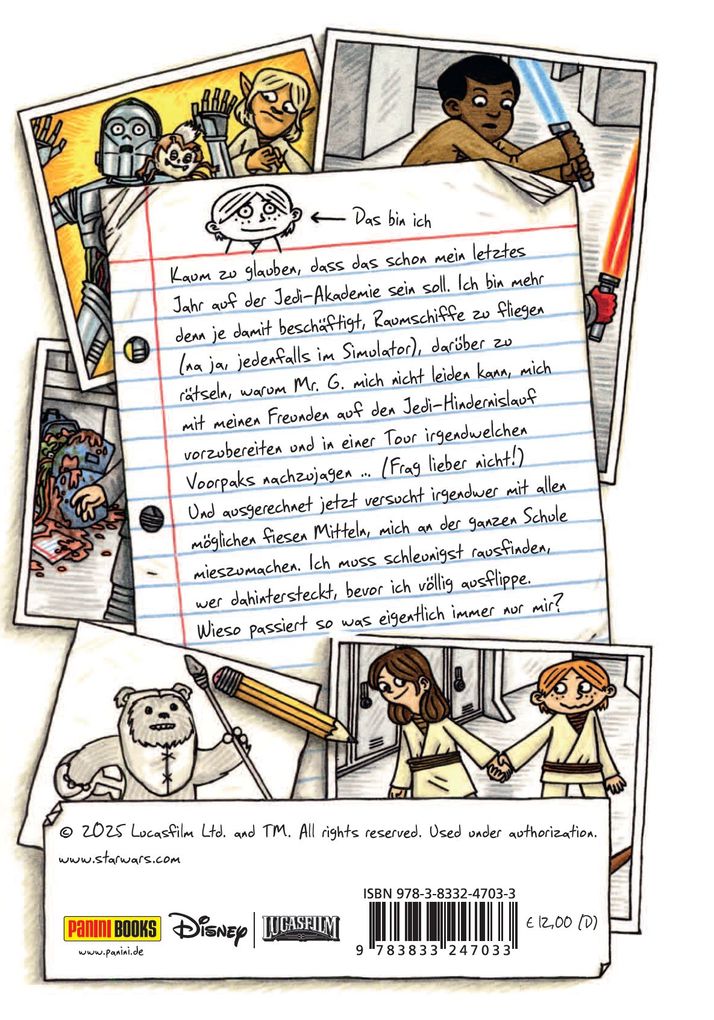 Das bin ich
Kaum zu glauben, dass das schon mein letztes
Jahr auf der Jedi-Akademie sein soll. Ich bin mehr
denn je damit beschäftigt, Raumschiffe zu fliegen
(na ja, jedenfalls im Simulator), darüber zu
rätseln, warum Mr. G. mich nicht leiden kann, mich
mit meinen Freunden auf den Jedi-Hindernislauf
vorzubereiten und in einer Tour irgendwelchen
Voorpaks nachzujagen ... (Frag lieber nicht!)
Und ausgerechnet jetzt versucht irgendwer mit allen
möglichen fiesen Mitteln, mich an der ganzen Schule
mieszumachen. Ich muss schleunigst rausfinden,
wer dahintersteckt, bevor ich völlig ausflippe.
Wieso passiert so was eigentlich immer nur mir?
© 2025 Lucasfilm Ltd. and TM. All rights reserved. Used under authorization.
www.starwars.com
ISBN 978-3-8332-4703-3
PANINI BOOKS
DISNEY
LUCASFILM
€ 12,00 (D)
www.panini.de
9 783833 247033